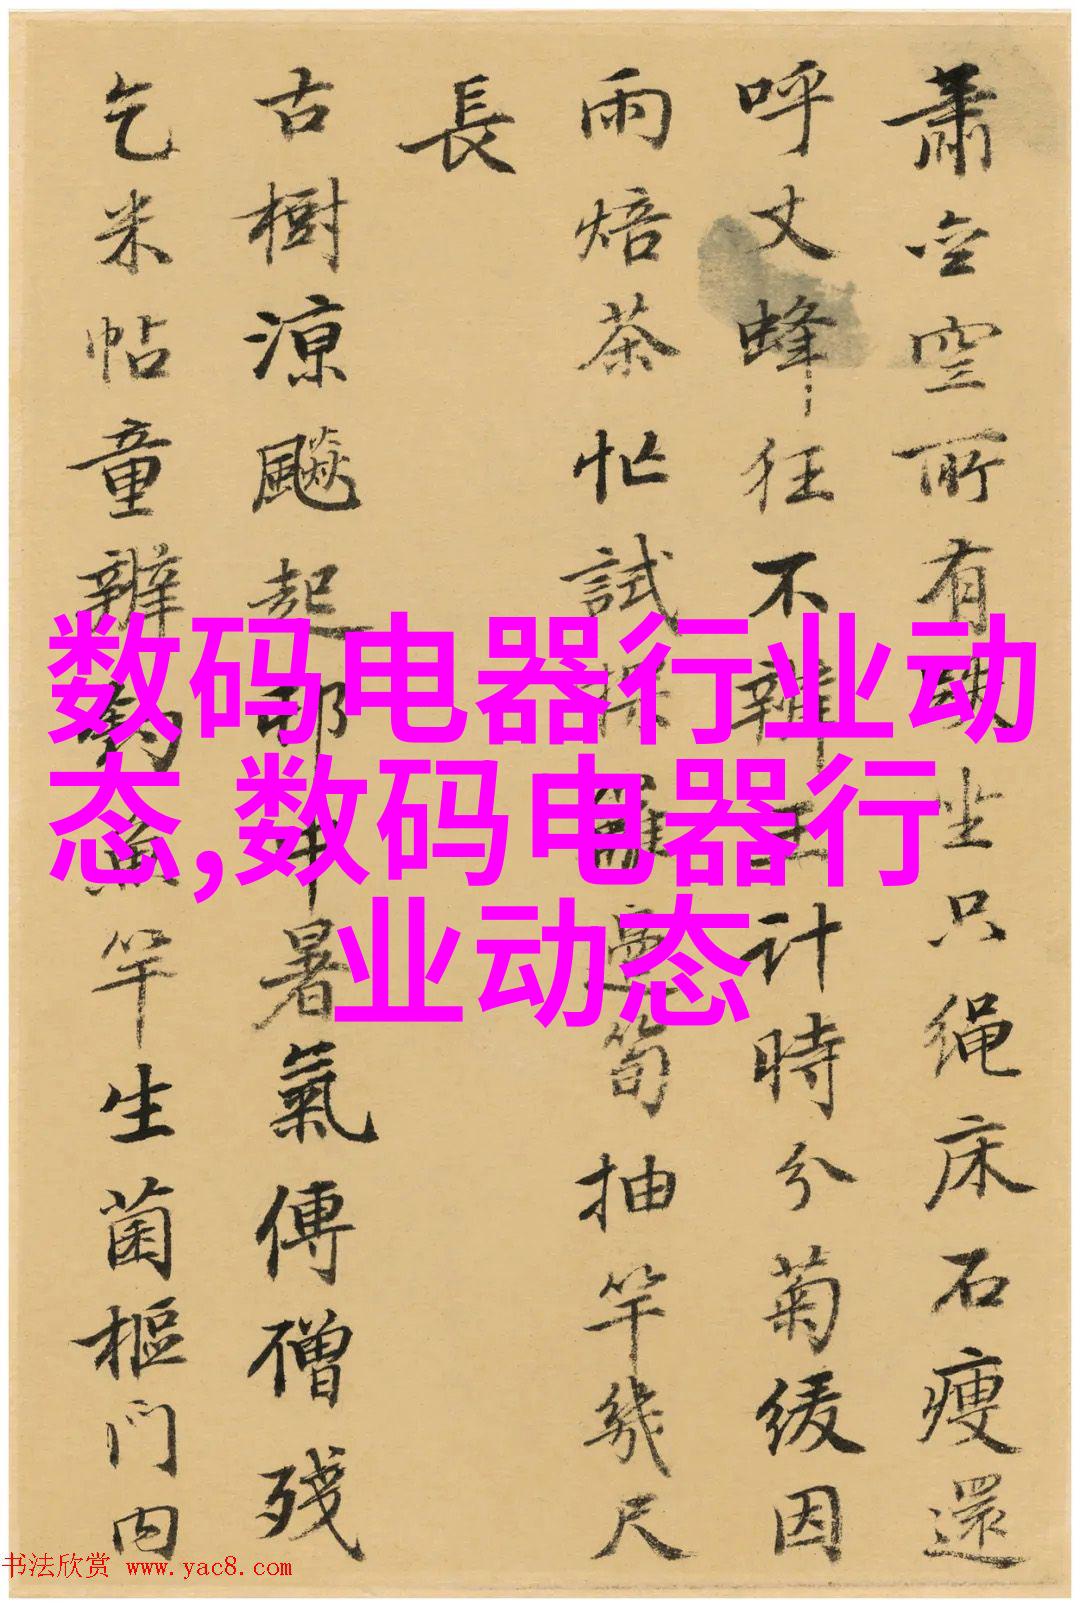 蕭室空所有 坐只绳床石瘦還
呼丈蜂狂不辨 計時分菊緩因
雨焙茶忙試 筍抽竿幾尺
長
古樹涼飈起 暑氣傳僧殘
乞米帖童辨 魚竿生菌樞門内
数码电器行业动
态,数码电器行
业动态
书法欣赏 www.yac8.com